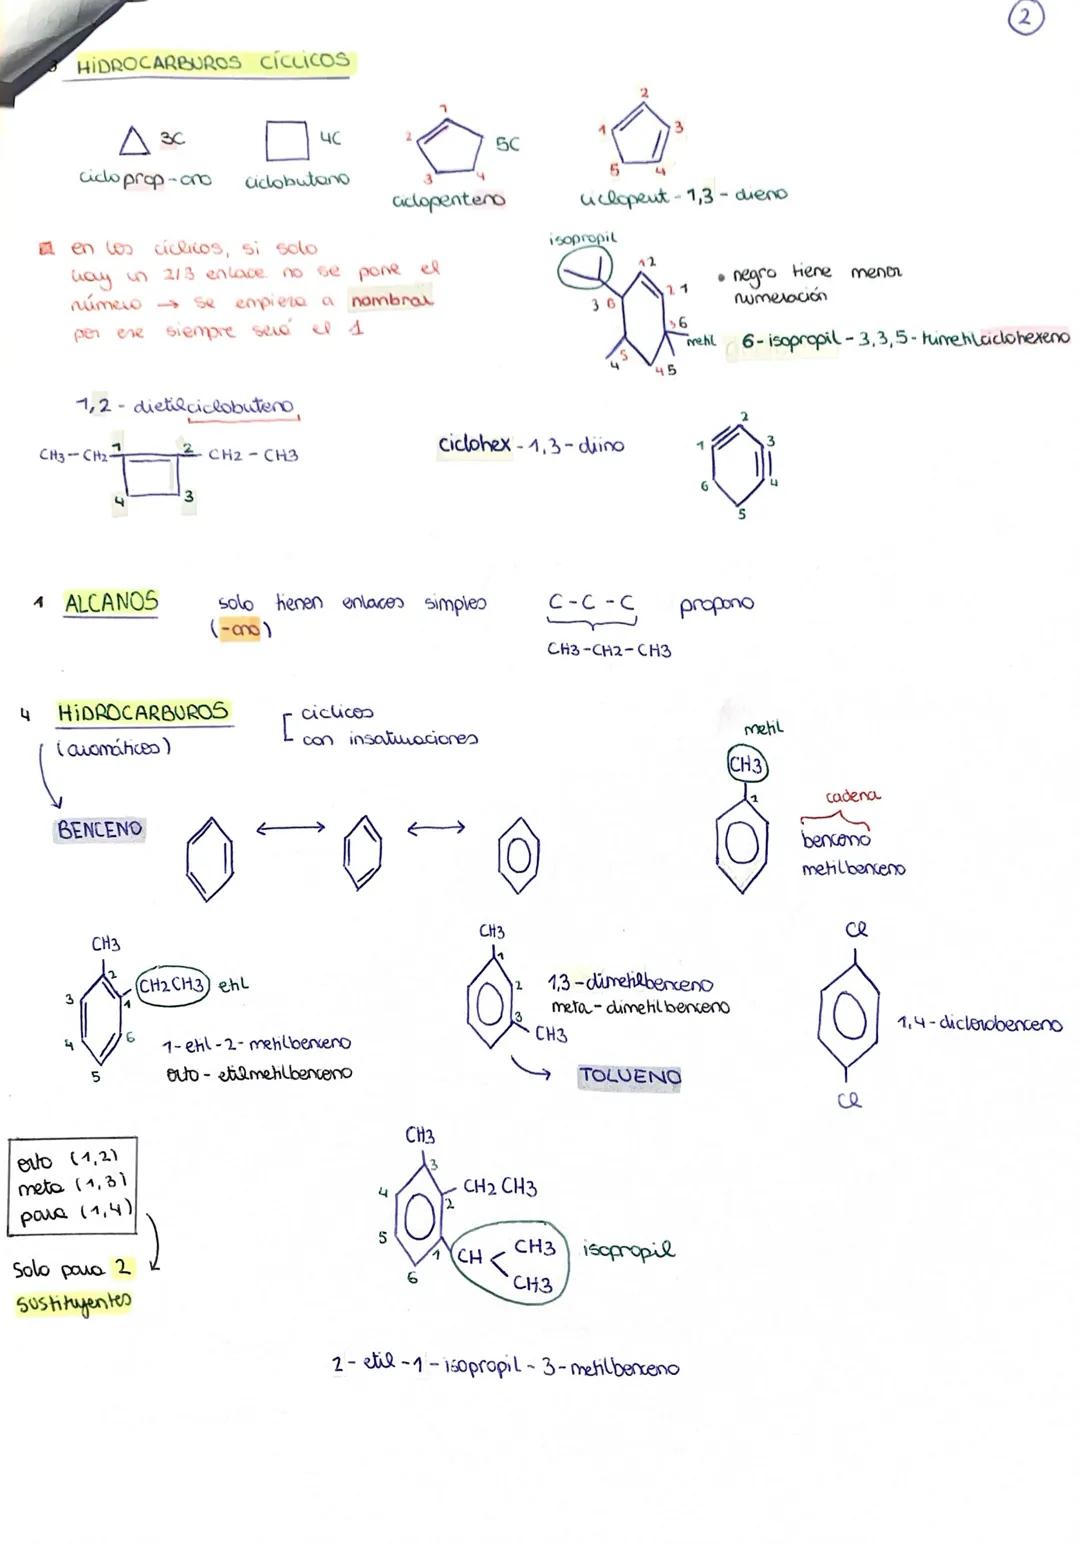 2
3 HIDROCARBUROS CÍCLICOS
3C
cicloprop-ano
4C
ciclobutano
1
2
3
4
5C
ciclopenteno
1
2
3
4
5
ciclopent-1,3-dieno
en los cíclicos, si solo
hay un 2/3 enlace no se pone el
número → se empieza a nombrar
por ese siempre será el 1
isopropil
1 2
2 1
3 6
3 6
metil
5
4
4 5
• negro tiene menor
numeración
6-isopropil-3,3,5-trimetilciclohexeno
1,2-dietilciclobuteno
CH3-CH2 1 2 CH2-CH3
4 3
ciclohex-1,3-diino
1
2
3
4
5
6
1 ALCANOS
solo tienen enlaces simples
(-ano)
C-C-C propano
CH3-CH2-CH3
4 HIDROCARBUROS
(aromáticos)
cíclicos
con insaturaciones
BENCENO
metil
CH3
1
cadena
benceno
metilbenceno
CH3
2
CH2CH3 etil
3
1
4
6
5
1-etil-2-metilbenceno
orto-etilmetilbenceno
CH3
1
2
3
CH3
1,3-dimetilbenceno
meta-dimetilbenceno
TOLUENO
Cl
1,4-diclorobenceno
Cl
orto (1,2)
meta (1,3)
para (1,4)
Solo para 2
sustituyentes
CH3
3
4
CH2CH3
2
5
1
6
CH
CH3
CH3
isopropil
2-etil-1-isopropil-3-metilbenceno